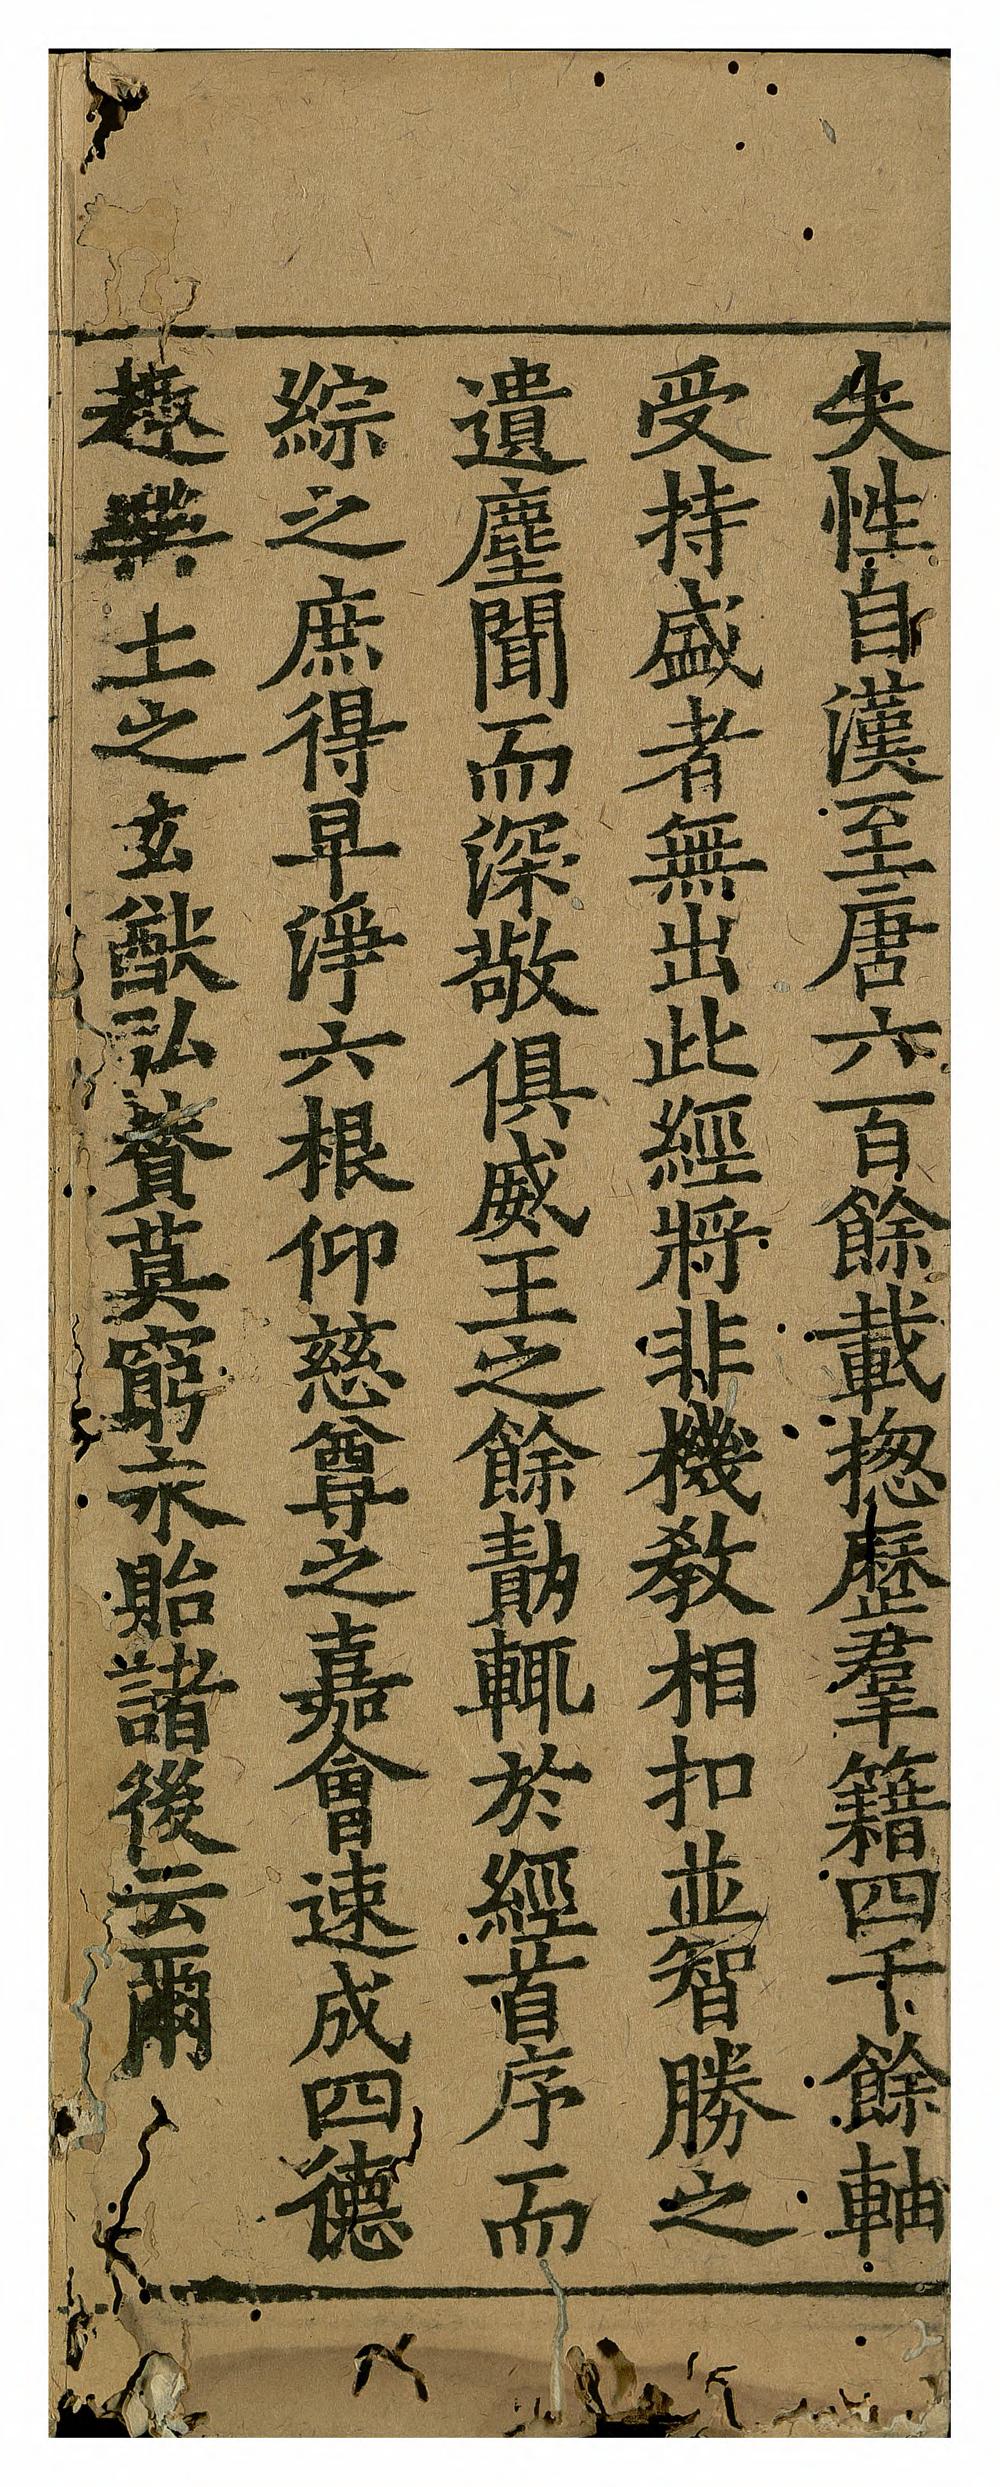 失性自漢至唐六百餘載揔歷羣籍四千餘軸
受持盛者無出此經將非機敎相扣並智勝之
遺塵聞而深敬俱威王之餘勣輒於經首序而
綜之庶得早淨六根仰慈尊之嘉會速成四德
趣樂土之玄猷弘賛莫窮永貽諸後云爾